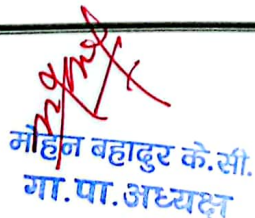 मोहन बहादुर के.सी.
गा.पा.अध्यक्ष